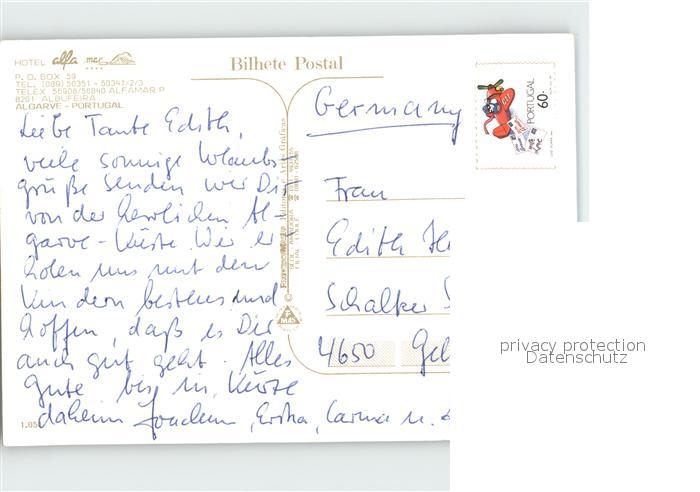 HOTEL alfa mar
P. O. BOX 59
TEL. (089) 50351 - 50341/2/3
TELEX 56908/56840 ALFAMAR P
8201 ALBUFEIRA
ALGARVE - PORTUGAL
Bilhete Postal
PORTUGAL
60.
Liebe Tante Edith,
viele sonnige Urlaubs-
grüße senden wir Dir
von der herrlichen Al-
garve-Küste. Wir er-
holen uns mit den
Kindern bestens und
hoffen, daß es Dir
auch gut geht. Alles
Gute bis in Kürze
daheim Joachim, Erika, Carina u.
Germany
Frau
Edith
Schalker
4650 Gel
1.05
privacy protection
Datenschutz